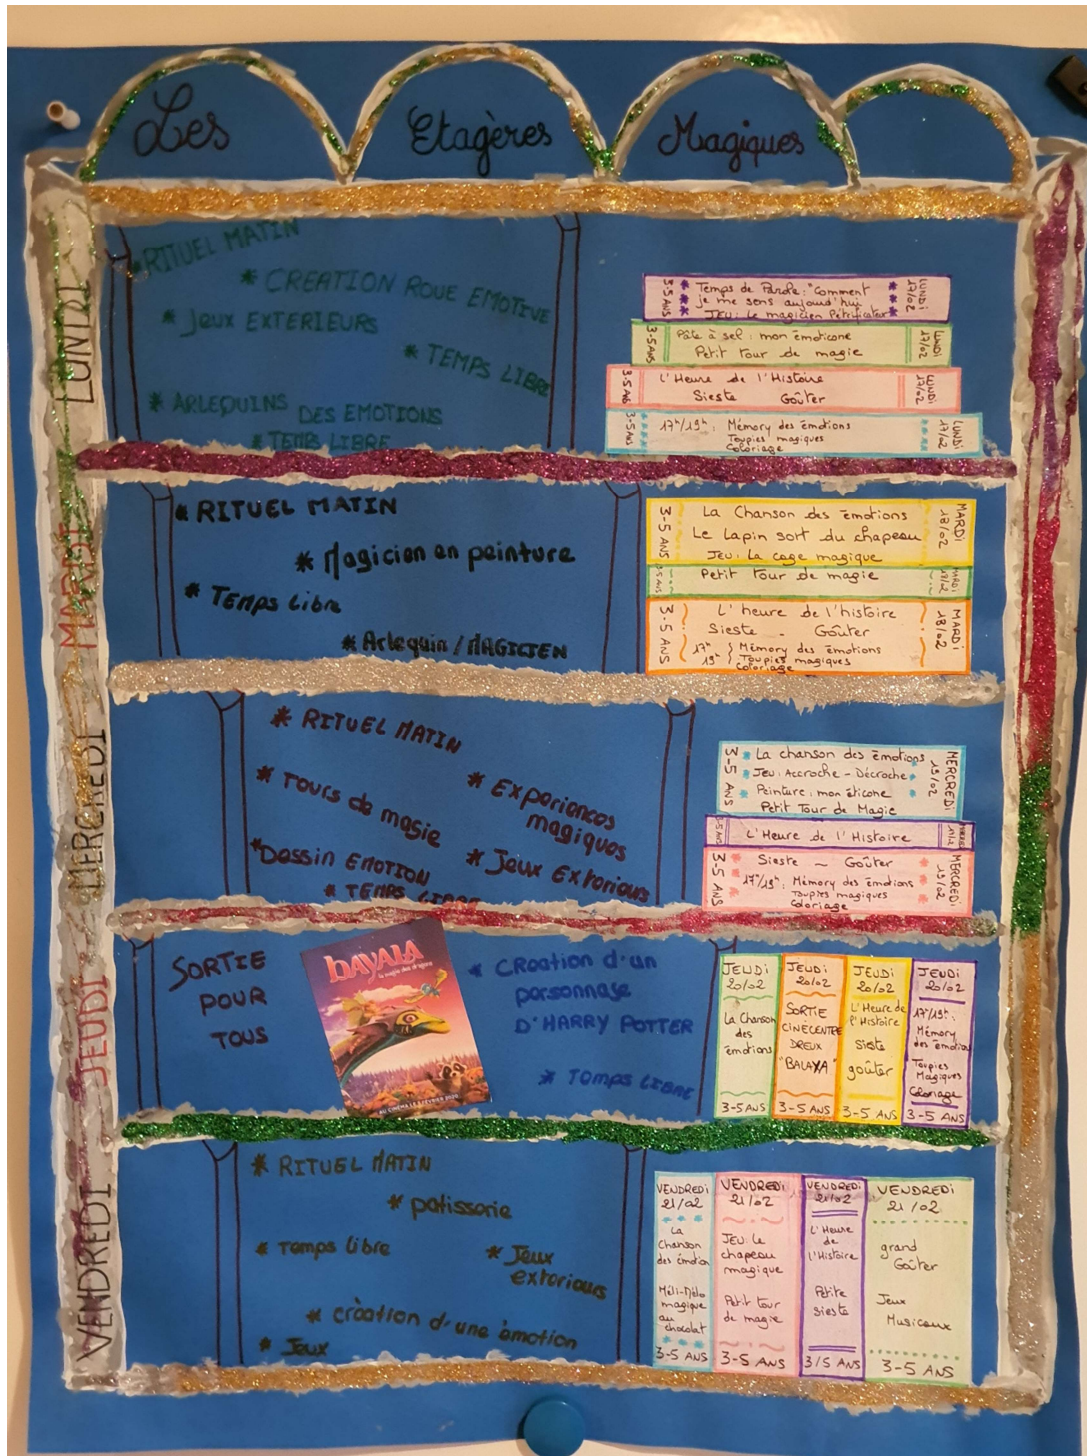 Les Etagères Magiques
LUNDI
* RITUEL MATIN
* CREATION ROUE EMOTIVE
* Jeux EXTERIEURS
* TEMPS LIBRE
* ARLEQUINS DES EMOTIONS
* TEMPS LIBRE
3-5 ANS
Temps de Parole : "Comment
je me sens aujourd'hui
JEU : Le magicien Pétrificateur
LUNDI
17/02
3-5 ANS
Pâte à sel : mon émoticone
Petit tour de magie
LUNDI
17/02
3-5 ANS
L'Heure de l'Histoire
Sieste Goûter
LUNDI
17/02
3-5 ANS
17h/19h : Mémory des émotions
Toupies magiques
Coloriage
LUNDI
17/02
MARDI
* RITUEL MATIN
* Magicien en peinture
* Temps Libre
* Arlequin / MAGICIEN
3-5 ANS
La Chanson des émotions
Le lapin sort du chapeau
JEU : La cage magique
MARDI
18/02
3-5 ANS
Petit tour de magie
MARDI
3-5 ANS
L'heure de l'histoire
Sieste - Goûter
17h } Mémory des émotions
19h } Toupies magiques
Coloriage
MARDI
18/02
MERCREDI
* RITUEL MATIN
* Tours de magie
* Experiences
magiques
* Dessin EMOTION
* Jeux Exterieurs
* TEMPS LIBRE
3-5 ANS
* La chanson des émotions
* Jeu : Accroche - Décroche
* Peinture : mon éticone
Petit Tour de Magie
MERCREDI
19/02
3-5 ANS
L'Heure de l'Histoire
3-5 ANS
Sieste ~ Goûter
17h/19h : Mémory des émotions
Toupies magiques
Coloriage
MERCREDI
19/02
JEUDI
SORTIE
POUR
TOUS
bayala
la magie des dragons
AU CINÉMA LE 12 FÉVRIER 2020
* Création d'un
personnage
D'HARRY POTTER
* Temps LIBRE
JEUDI
20/02
La Chanson
des
émotions
3-5 ANS
JEUDI
20/02
SORTIE
CINÉCENTRE
DREUX
"BALAYA"
3-5 ANS
JEUDI
20/02
L'Heure de
l'Histoire
Sieste
goûter
3-5 ANS
JEUDI
20/02
17h/19h :
Mémory
des émotions
Toupies
Magiques
Coloriage
3-5 ANS
VENDREDI
* RITUEL MATIN
* patisserie
* Temps libre
* Jeux
exterieurs
* création d'une émotion
* Jeux
VENDREDI
21/02
La
Chanson
des émotion
Méli-Mélo
magique
au
chocolat
3-5 ANS
VENDREDI
21/02
JEU : Le
chapeau
magique
Petit tour
de magie
3-5 ANS
VENDREDI
21/02
L'Heure
de
l'Histoire
Petite
sieste
3/5 ANS
VENDREDI
21/02
grand
Goûter
Jeux
Musicaux
3-5 ANS